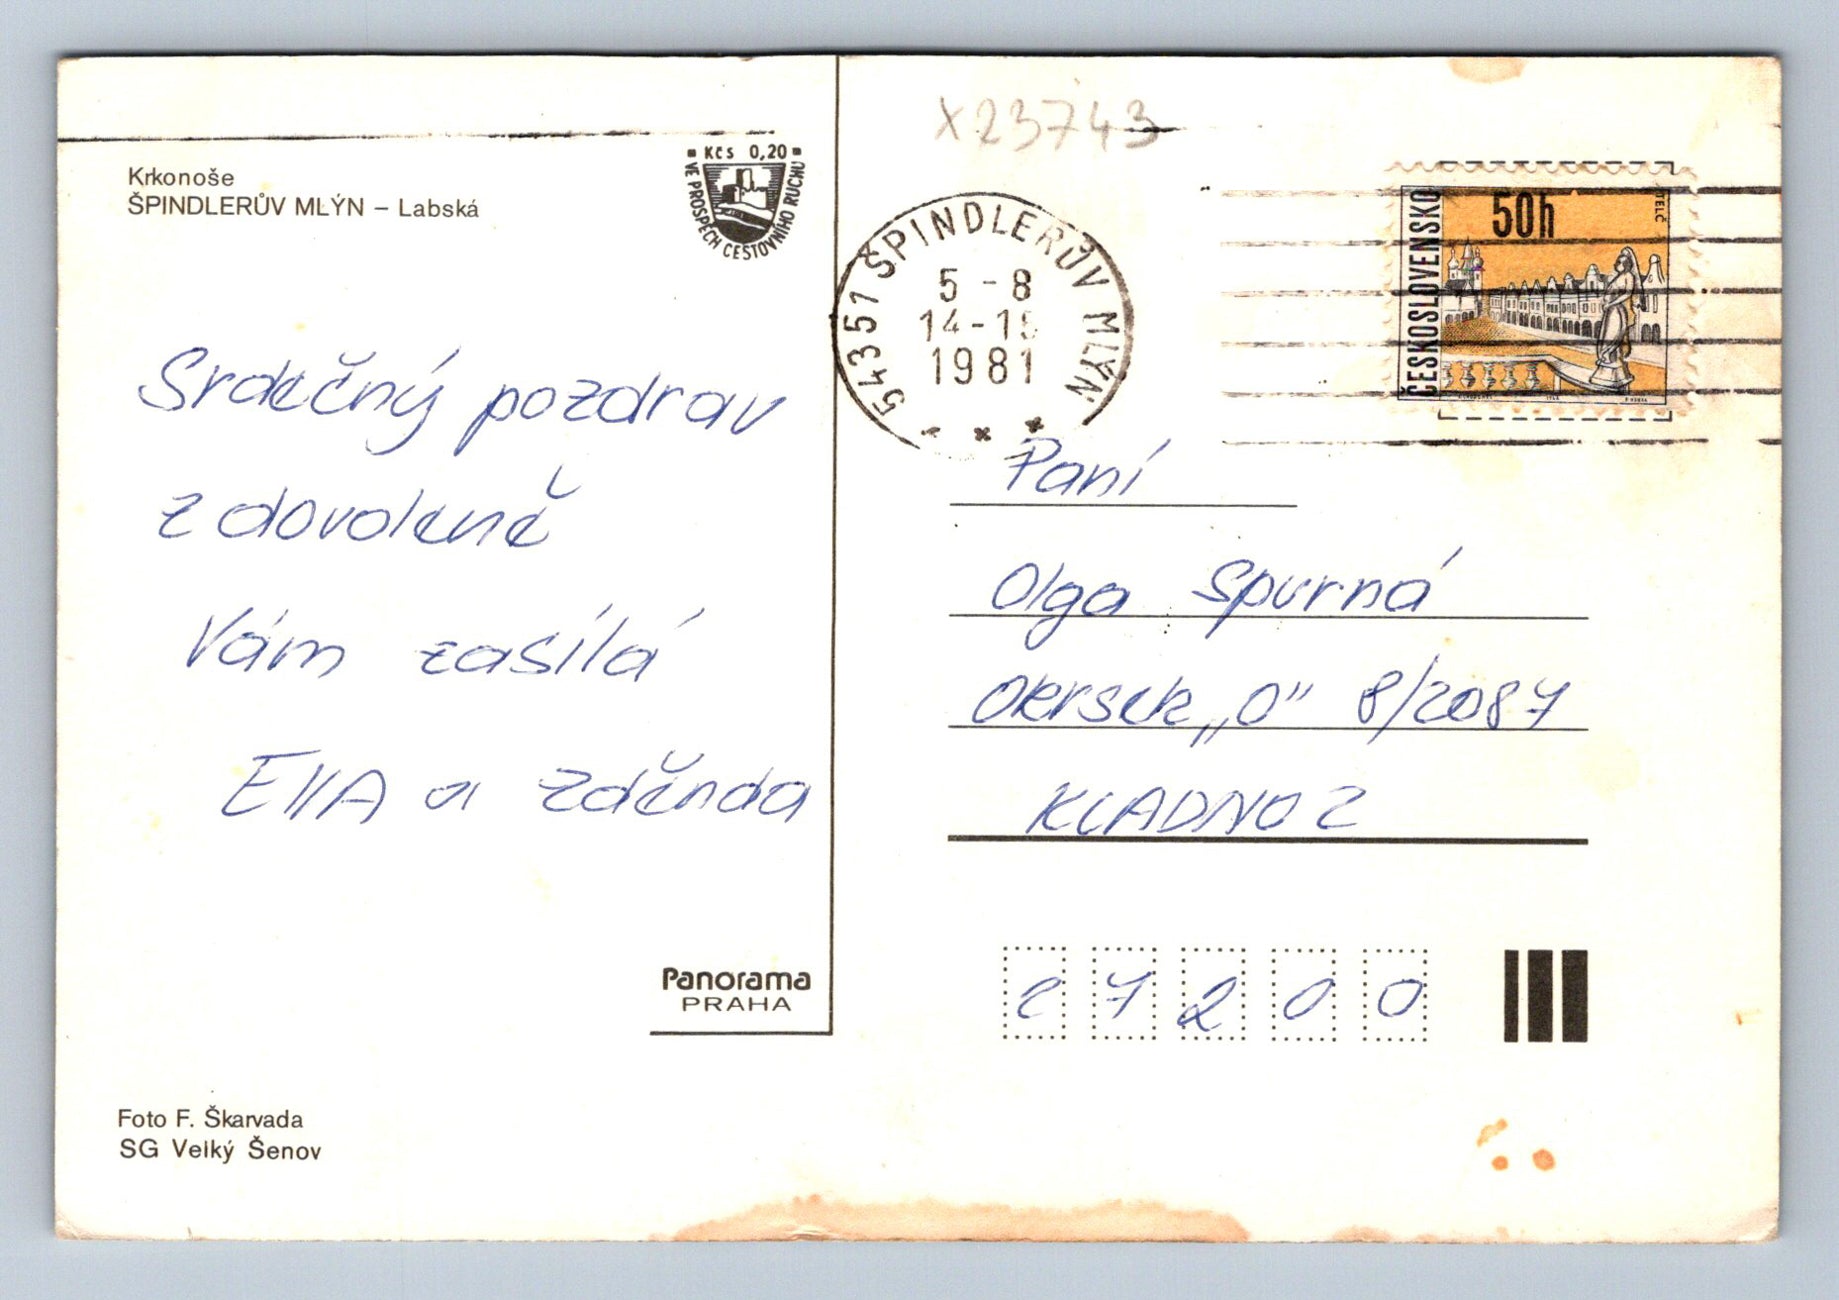 X23743
Krkonoše
ŠPINDLERŮV MLÝN – Labská
Kčs 0,20
VE PROSPĚCH CESTOVNÍHO RUCHU
54351 ŠPINDLERŮV MLÝN
5 - 8
14-15
1981
ČESKOSLOVENSKO
50h
TELČ
Srdečný pozdrav
z dovolené
Vám zasílá
EVA a Zděnda
Paní
Olga Spurná
Okrsek „O" 8/2087
KLADNO 2
27200
Panorama
PRAHA
Foto F. Škarvada
SG Velký Šenov